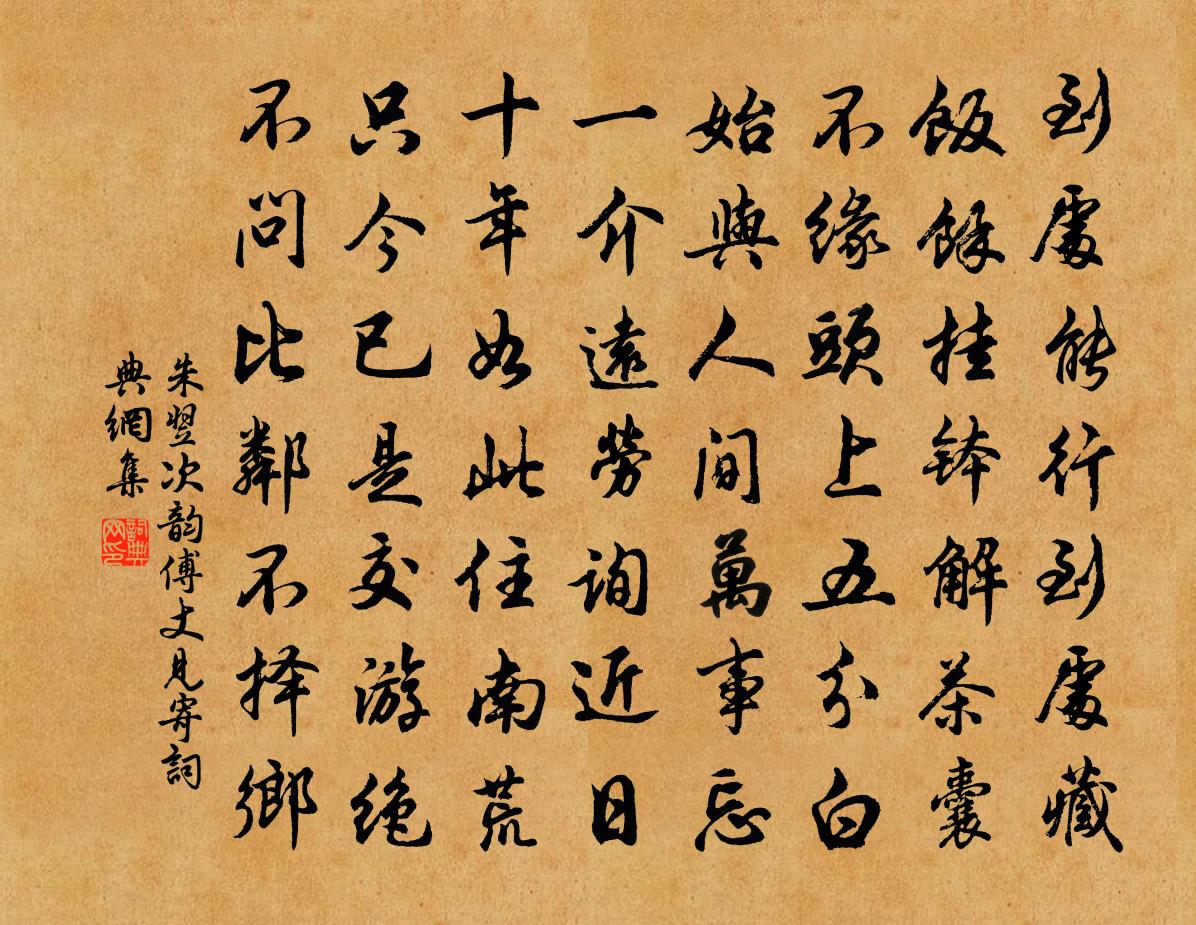 到處能行到處藏
飯餘挂鉢解茶囊
不緣頭上五分白
始與人間萬事忘
一介遠勞詢近日
十年如此住南荒
只今已是交游絶
不問比鄰不择鄉
朱翌次韵傅丈見寄詞
典網集
詞典网印